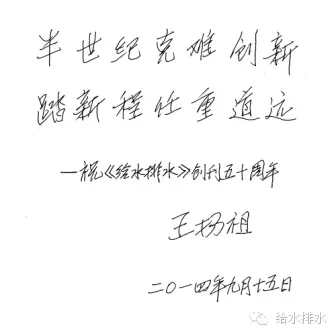 半世纪克难创新
踏新程任重道远
—祝《给水排水》创刊五十周年
王扬祖
二〇一四年九月十五日
给水排水